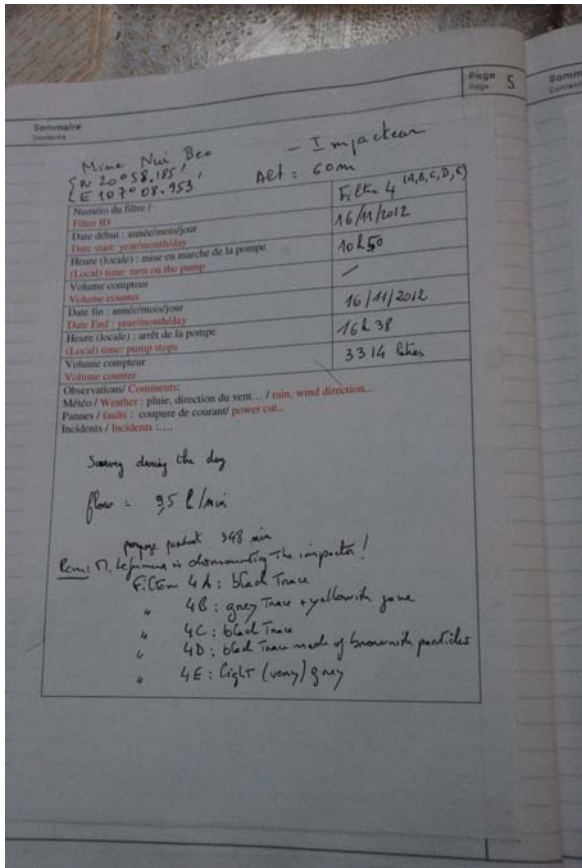 Page
Page 5
Sommaire
Contents
Somm
Conten
Mine Nui Beo - Impacteur
N 20°58.185'
E 107°08.953' Alt = 60m
Numéro du filtre / Filtre 4 (A,B,C,D,E)
Filter ID
Date début : année/mois/jour 16/11/2012
Date start: year/month/day
Heure (locale) : mise en marche de la pompe 10h50
(Local) time: turn on the pump
Volume compteur /
Volume counter
Date fin : année/mois/jour 16/11/2012
Date End : year/month/day
Heure (locale) : arrêt de la pompe 16h38
(Local) time: pump stops
Volume compteur 3314 litres
Volume counter
Observations/ Comments:
Météo / Weather : pluie, direction du vent… / rain, wind direction...
Pannes / faults : coupure de courant/ power cut..
Incidents / Incidents :….
during the day
flow = 9,5 l/min
pompage pendant 348 min
Rem: M. is dismounting the impactor!
Filter 4A : black Trace
" 4B : grey Trace + yellowish zone
" 4C : black Trace
" 4D : black Trace made of brownish particles
" 4E : light (very) grey